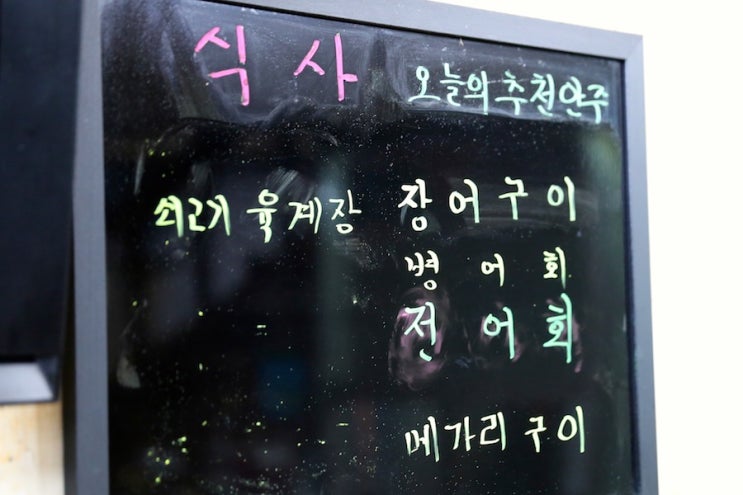 식사
쇠고기 육계장
오늘의 추천안주
장어구이
병어회
전어회
메가리구이